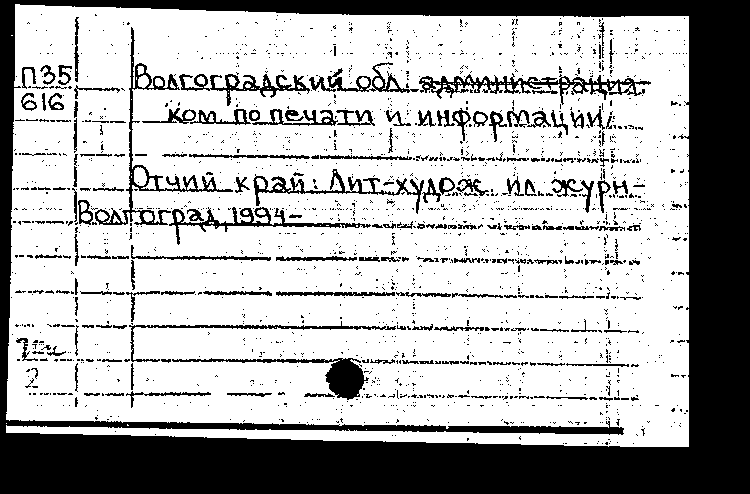 П35
616
Волгоградский обл. администрация.
ком по печати и информации.
Отчий край: Лит-худож ил журн-
Волгоград, 1994-
2